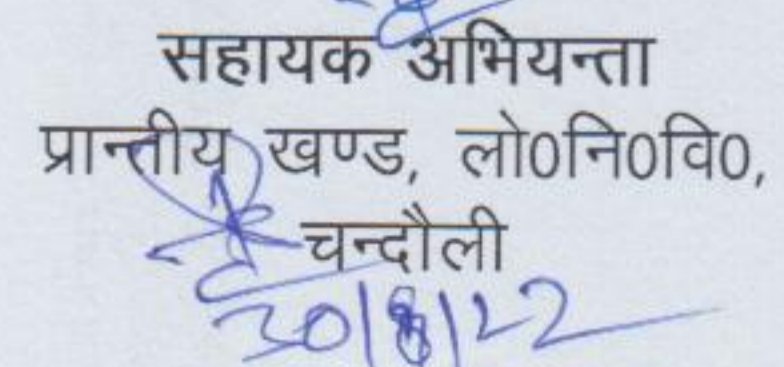 सहायक अभियन्ता
प्रान्तीय खण्ड, लो0नि0वि0,
चन्दौली
30/8/22